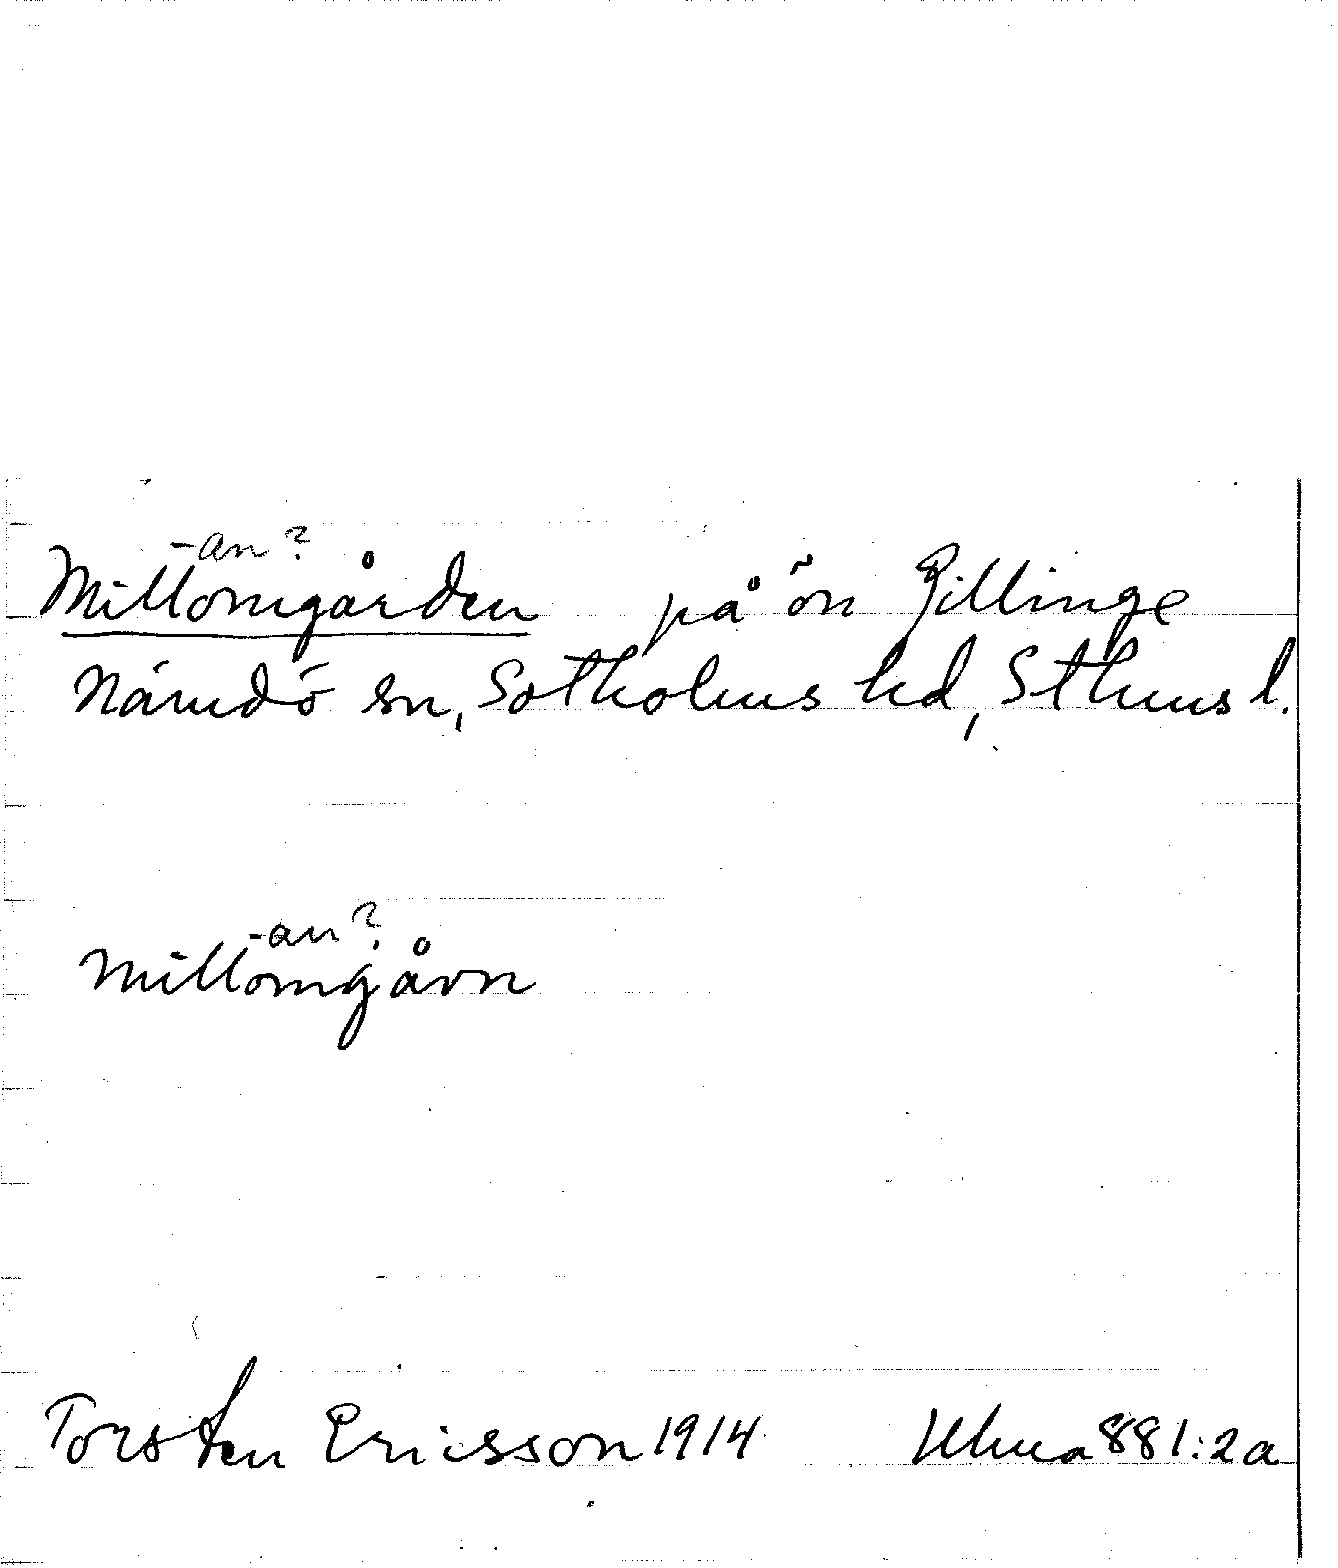 -an?
Millomgården på ön Gillinge
Nämdö sn, Sotholms hd, Sthms l.
-an?
Millomgårn
Torsten Ericsson 1914 Ulma 881:2a